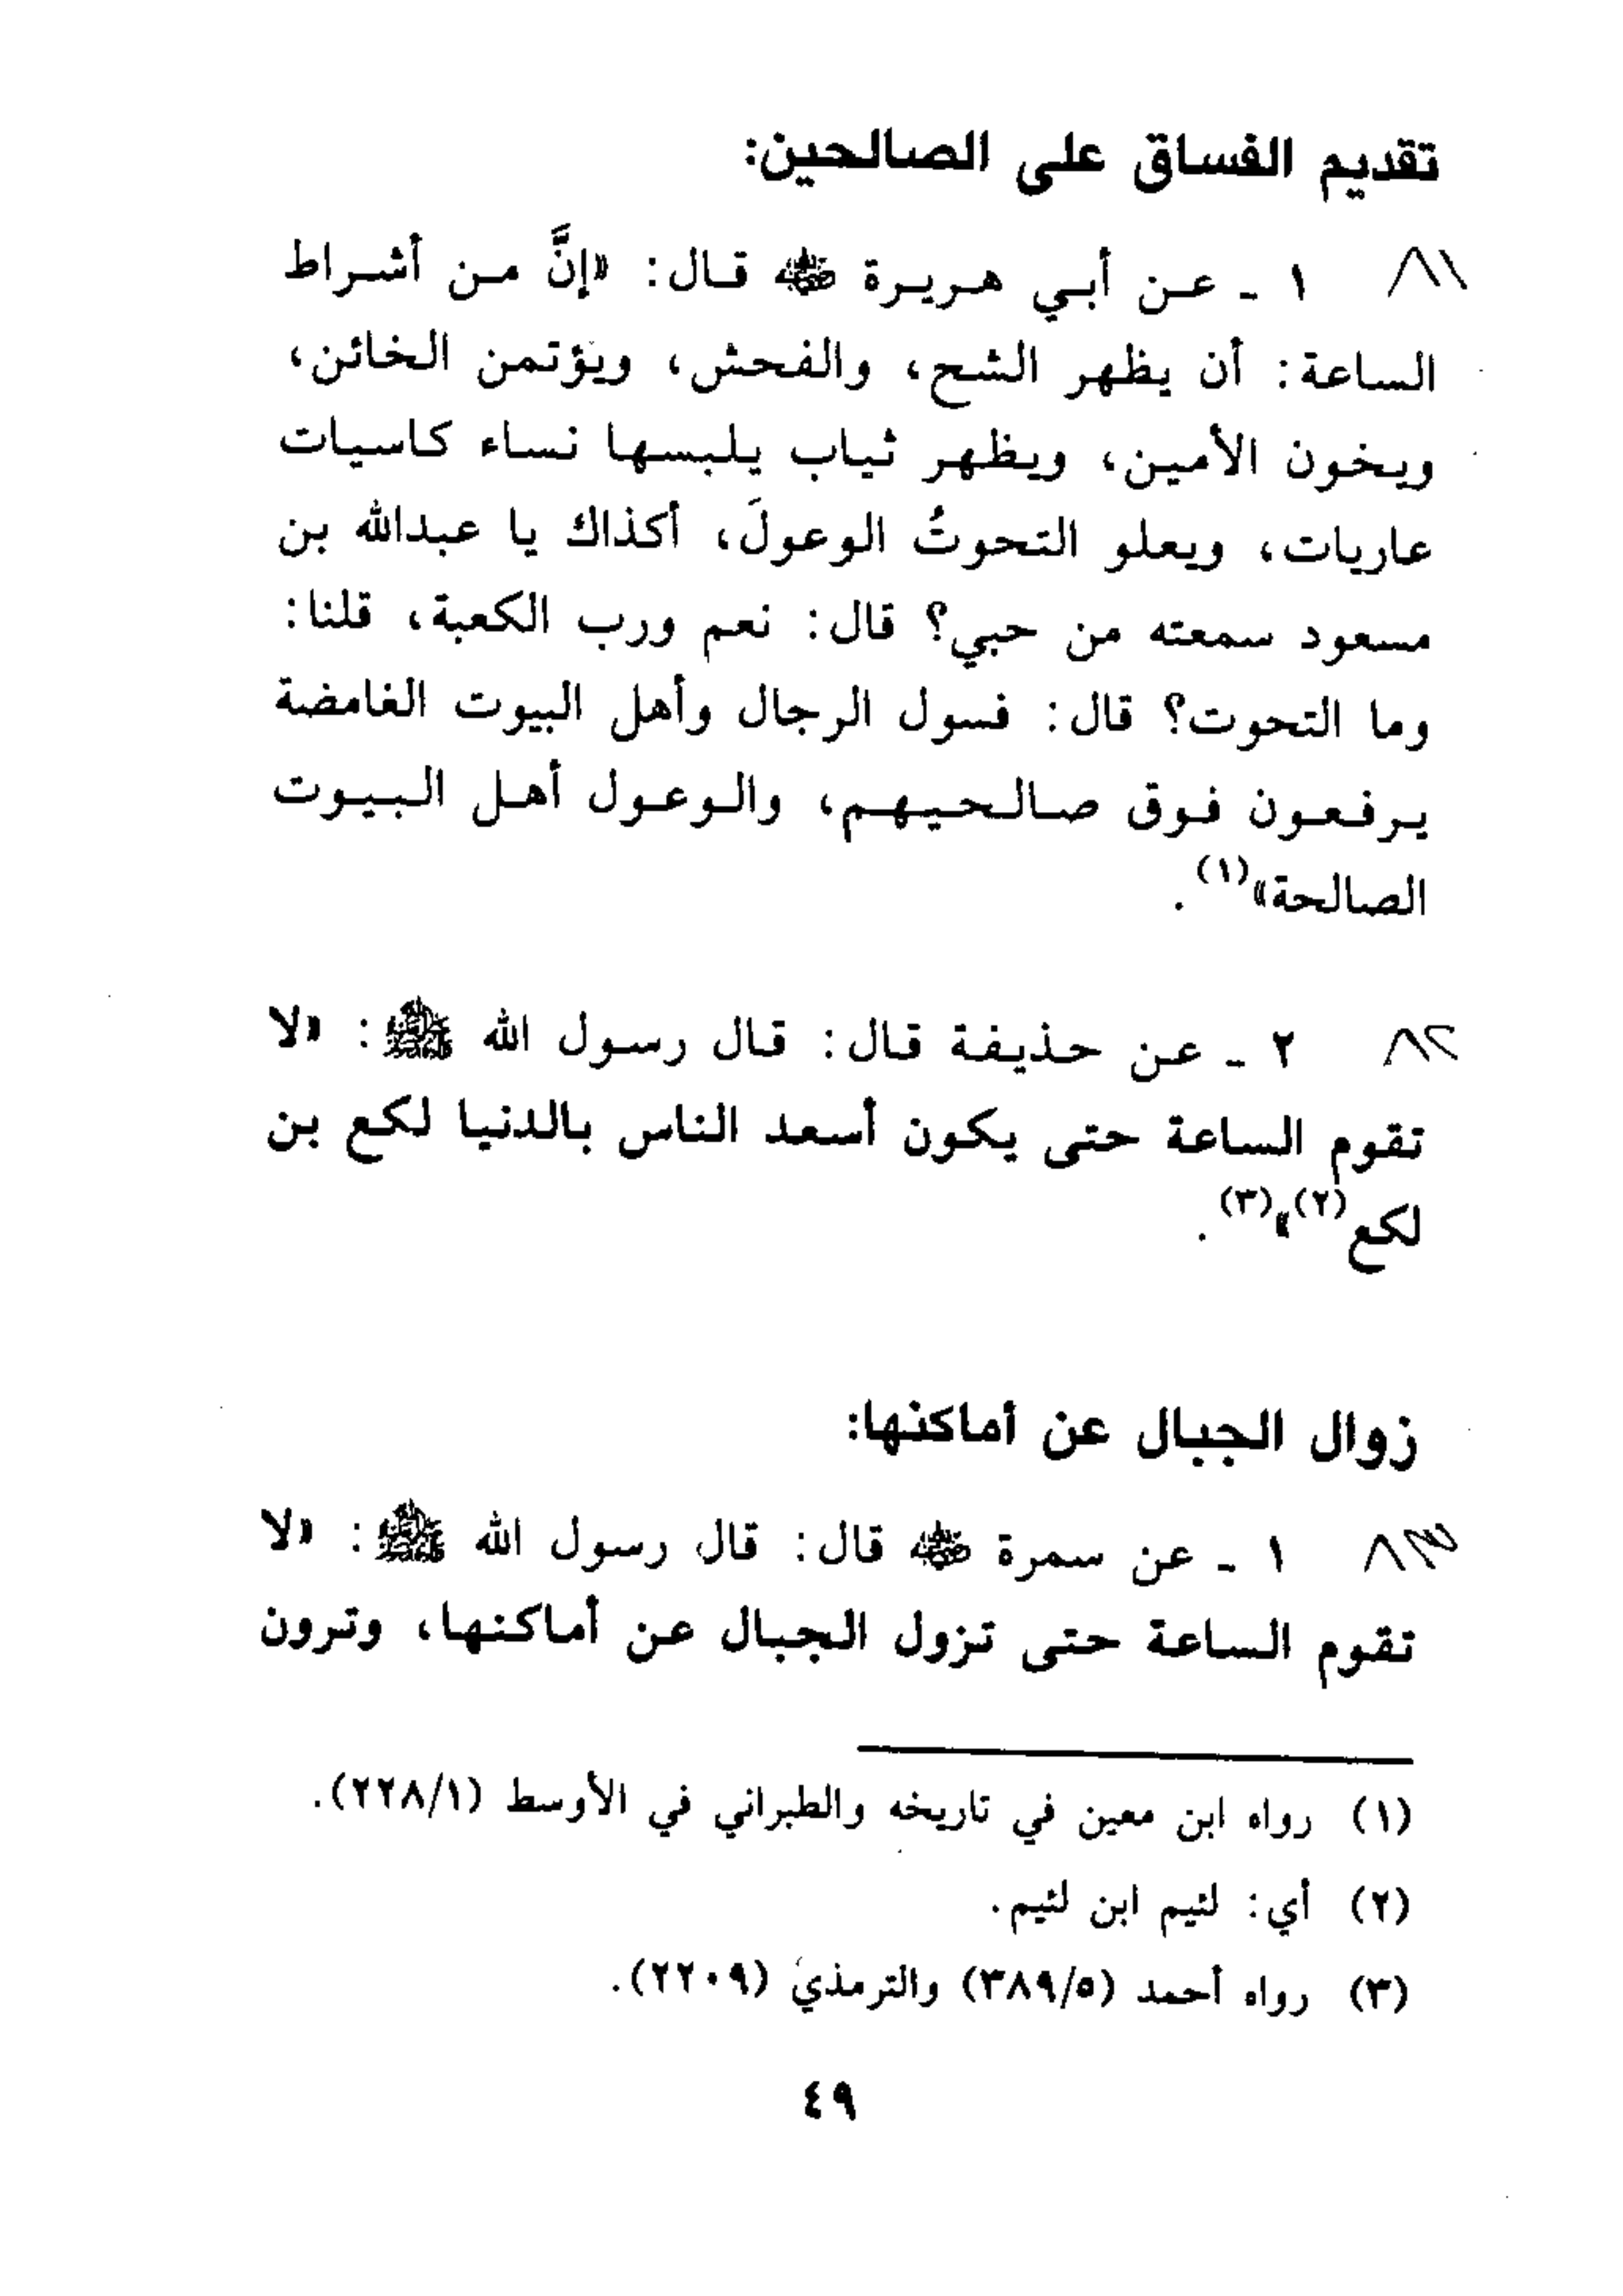 تقديم الفساق على الصالحين:
٨١ ١ ـ عن أبي هريرة رضي الله عنه قال: «إنَّ من أشراط
الساعة: أن يظهر الشح، والفحش، ويؤتمن الخائن،
ويخون الأمين، ويظهر ثياب يلبسها نساء كاسيات
عاريات، ويعلو التحوتُ الوعولَ، أكذاك يا عبدالله بن
مسعود سمعته من حبي؟ قال: نعم ورب الكعبة، قلنا:
وما التحوت؟ قال: فسول الرجال وأهل البيوت الغامضة
يرفعون فوق صالحيهم، والوعول أهل البيوت
الصالحة»(١).
٨٢ ٢ ـ عن حذيفة قال: قال رسول الله ﷺ: «لا
تقوم الساعة حتى يكون أسعد الناس بالدنيا لكع بن
لكع(٢)»(٣).
زوال الجبال عن أماكنها:
٨٣ ١ ـ عن سمرة رضي الله عنه قال: قال رسول الله ﷺ: «لا
تقوم الساعة حتى تزول الجبال عن أماكنها، وترون
(١) رواه ابن معين في تاريخه والطبراني في الأوسط (٢٢٨/١).
(٢) أي: لئيم ابن لئيم.
(٣) رواه أحمد (٣٨٩/٥) والترمذي (٢٢٠٩).
٤٩